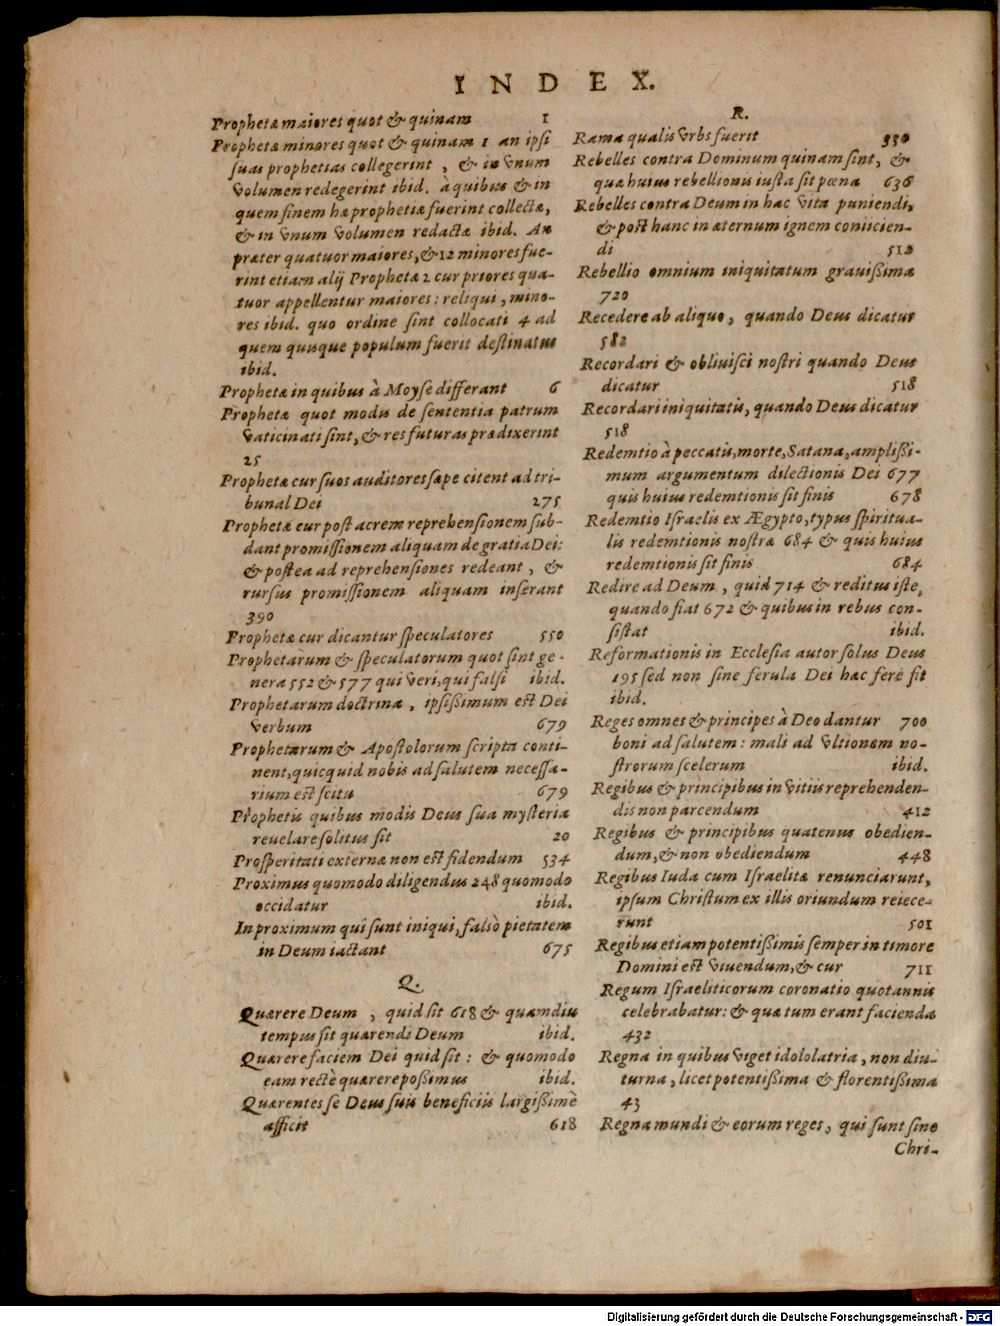 INDEX.
Prophetæ maiores quot & quinam 1
Prophetæ minores quot & quinam 1 an ipsi
suas prophetias collegerint, & in vnum
volumen redegerint ibid. à quibus & in
quem finem hæ prophetiæ fuerint collectæ,
& in vnum volumen redactæ ibid. An
præter quatuor maiores, & 12 minores fue-
rint etiam alij Prophetæ 2 cur priores qua-
tuor appellentur maiores: reliqui, mino-
res ibid. quo ordine sint collocati 4 ad
quem quisque populum fuerit destinatus
ibid.
Prophetæ in quibus à Moyse differant 6
Prophetæ quot modis de sententia patrum
vaticinati sint, & res futuras prædixerint
25
Prophetæ cur suos auditores sæpe citent ad tri-
bunal Dei 275
Prophetæ cur post acrem reprehensionem sub-
dant promissionem aliquam de gratia Dei:
& postea ad reprehensiones redeant, &
rursus promissionem aliquam inserant
390
Prophetæ cur dicantur speculatores 550
Prophetarum & speculatorum quot sint ge-
nera 552 & 577 qui veri, qui falsi ibid.
Prophetarum doctrina, ipsissimum est Dei
verbum 679
Prophetarum & Apostolorum scripta conti-
nent, quicquid nobis ad salutem necessa-
rium est scitu 679
Prophetis quibus modis Deus sua mysteria
reuelare solitus sit 20
Prosperitati externæ non est fidendum 534
Proximus quomodo diligendus 248 quomodo
occidatur ibid.
In proximum qui sunt iniqui, falsò pietatem
in Deum iactant 675
Q.
Quærere Deum, quid sit 618 & quamdiu
tempus sit quærendi Deum ibid.
Quærere faciem Dei quid sit: & quomodo
eam rectè quærere possimus ibid.
Quærentes se Deus suis beneficiis largissimè
afficit 618
R.
Rama qualis vrbs fuerit 330
Rebelles contra Dominum quinam sint, &
quæ huius rebellionis iusta sit pœna 636
Rebelles contra Deum in hac vita puniendi,
& post hanc in æternum ignem coniicien-
di 512
Rebellio omnium iniquitatum grauissima
720
Recedere ab aliquo, quando Deus dicatur
582
Recordari & obliuisci nostri quando Deus
dicatur 518
Recordari iniquitatis, quando Deus dicatur
518
Redemtio à peccatis, morte, Satana, amplissi-
mum argumentum dilectionis Dei 677
quis huius redemtionis sit finis 678
Redemtio Israelis ex Ægypto, typus spiritua-
lis redemtionis nostræ 684 & quis huius
redemtionis sit finis 684
Redire ad Deum, quid 714 & reditus iste,
quando fiat 672 & quibus in rebus con-
sistat ibid.
Reformationis in Ecclesia autor solus Deus
195 sed non sine ferula Dei hæc ferè fit
ibid.
Reges omnes & principes à Deo dantur 700
boni ad salutem: mali ad vltionem no-
strorum scelerum ibid.
Regibus & principibus in vitiis reprehenden-
dis non parcendum 412
Regibus & principibus quatenus obedien-
dum, & non obediendum 448
Regibus Iuda cum Israelitæ renunciarunt,
ipsum Christum ex illis oriundum reiece-
runt 501
Regibus etiam potentissimis semper in timore
Domini est viuendum, & cur 711
Regum Israeliticorum coronatio quotannis
celebrabatur: & quæ tum erant facienda
432
Regna in quibus viget idololatria, non diu-
turna, licet potentissima & florentissima
43
Regna mundi & eorum reges, qui sunt sine
Chri-
Digitalisierung gefördert durch die Deutsche Forschungsgemeinschaft - DFG